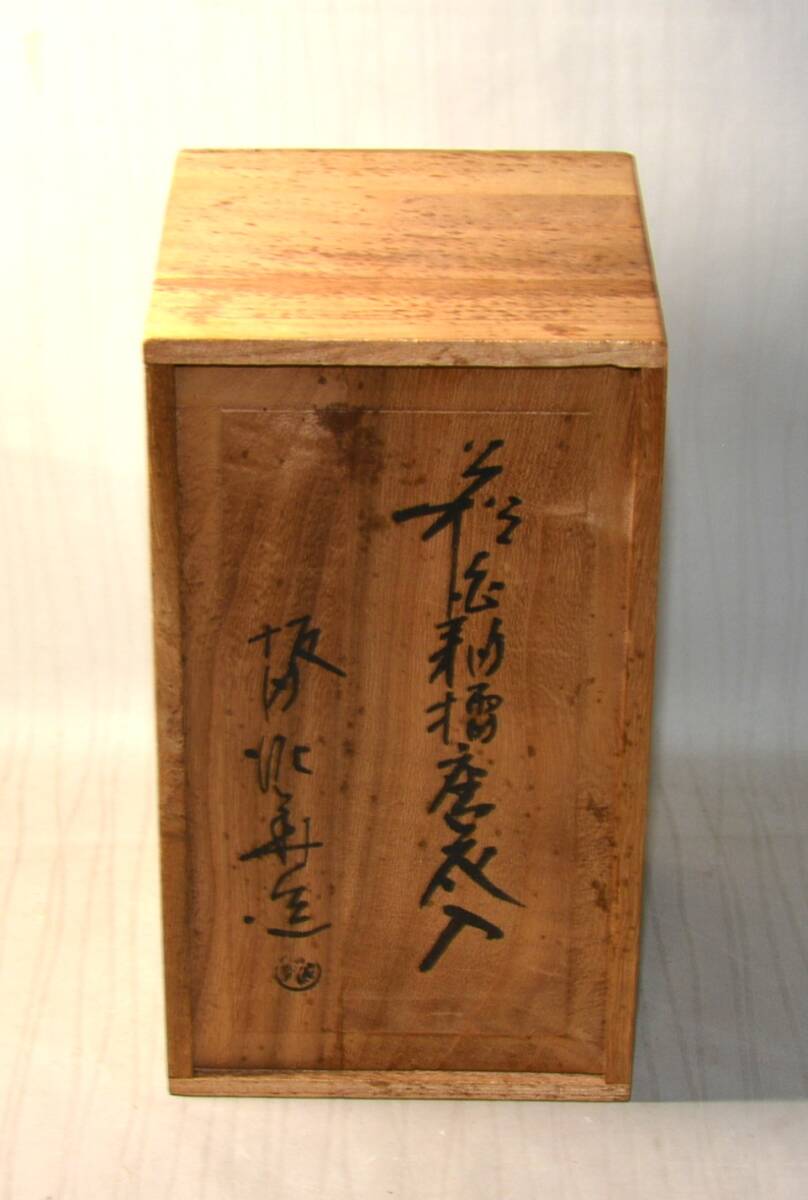 萩釉擂座花入
坂田泥華造